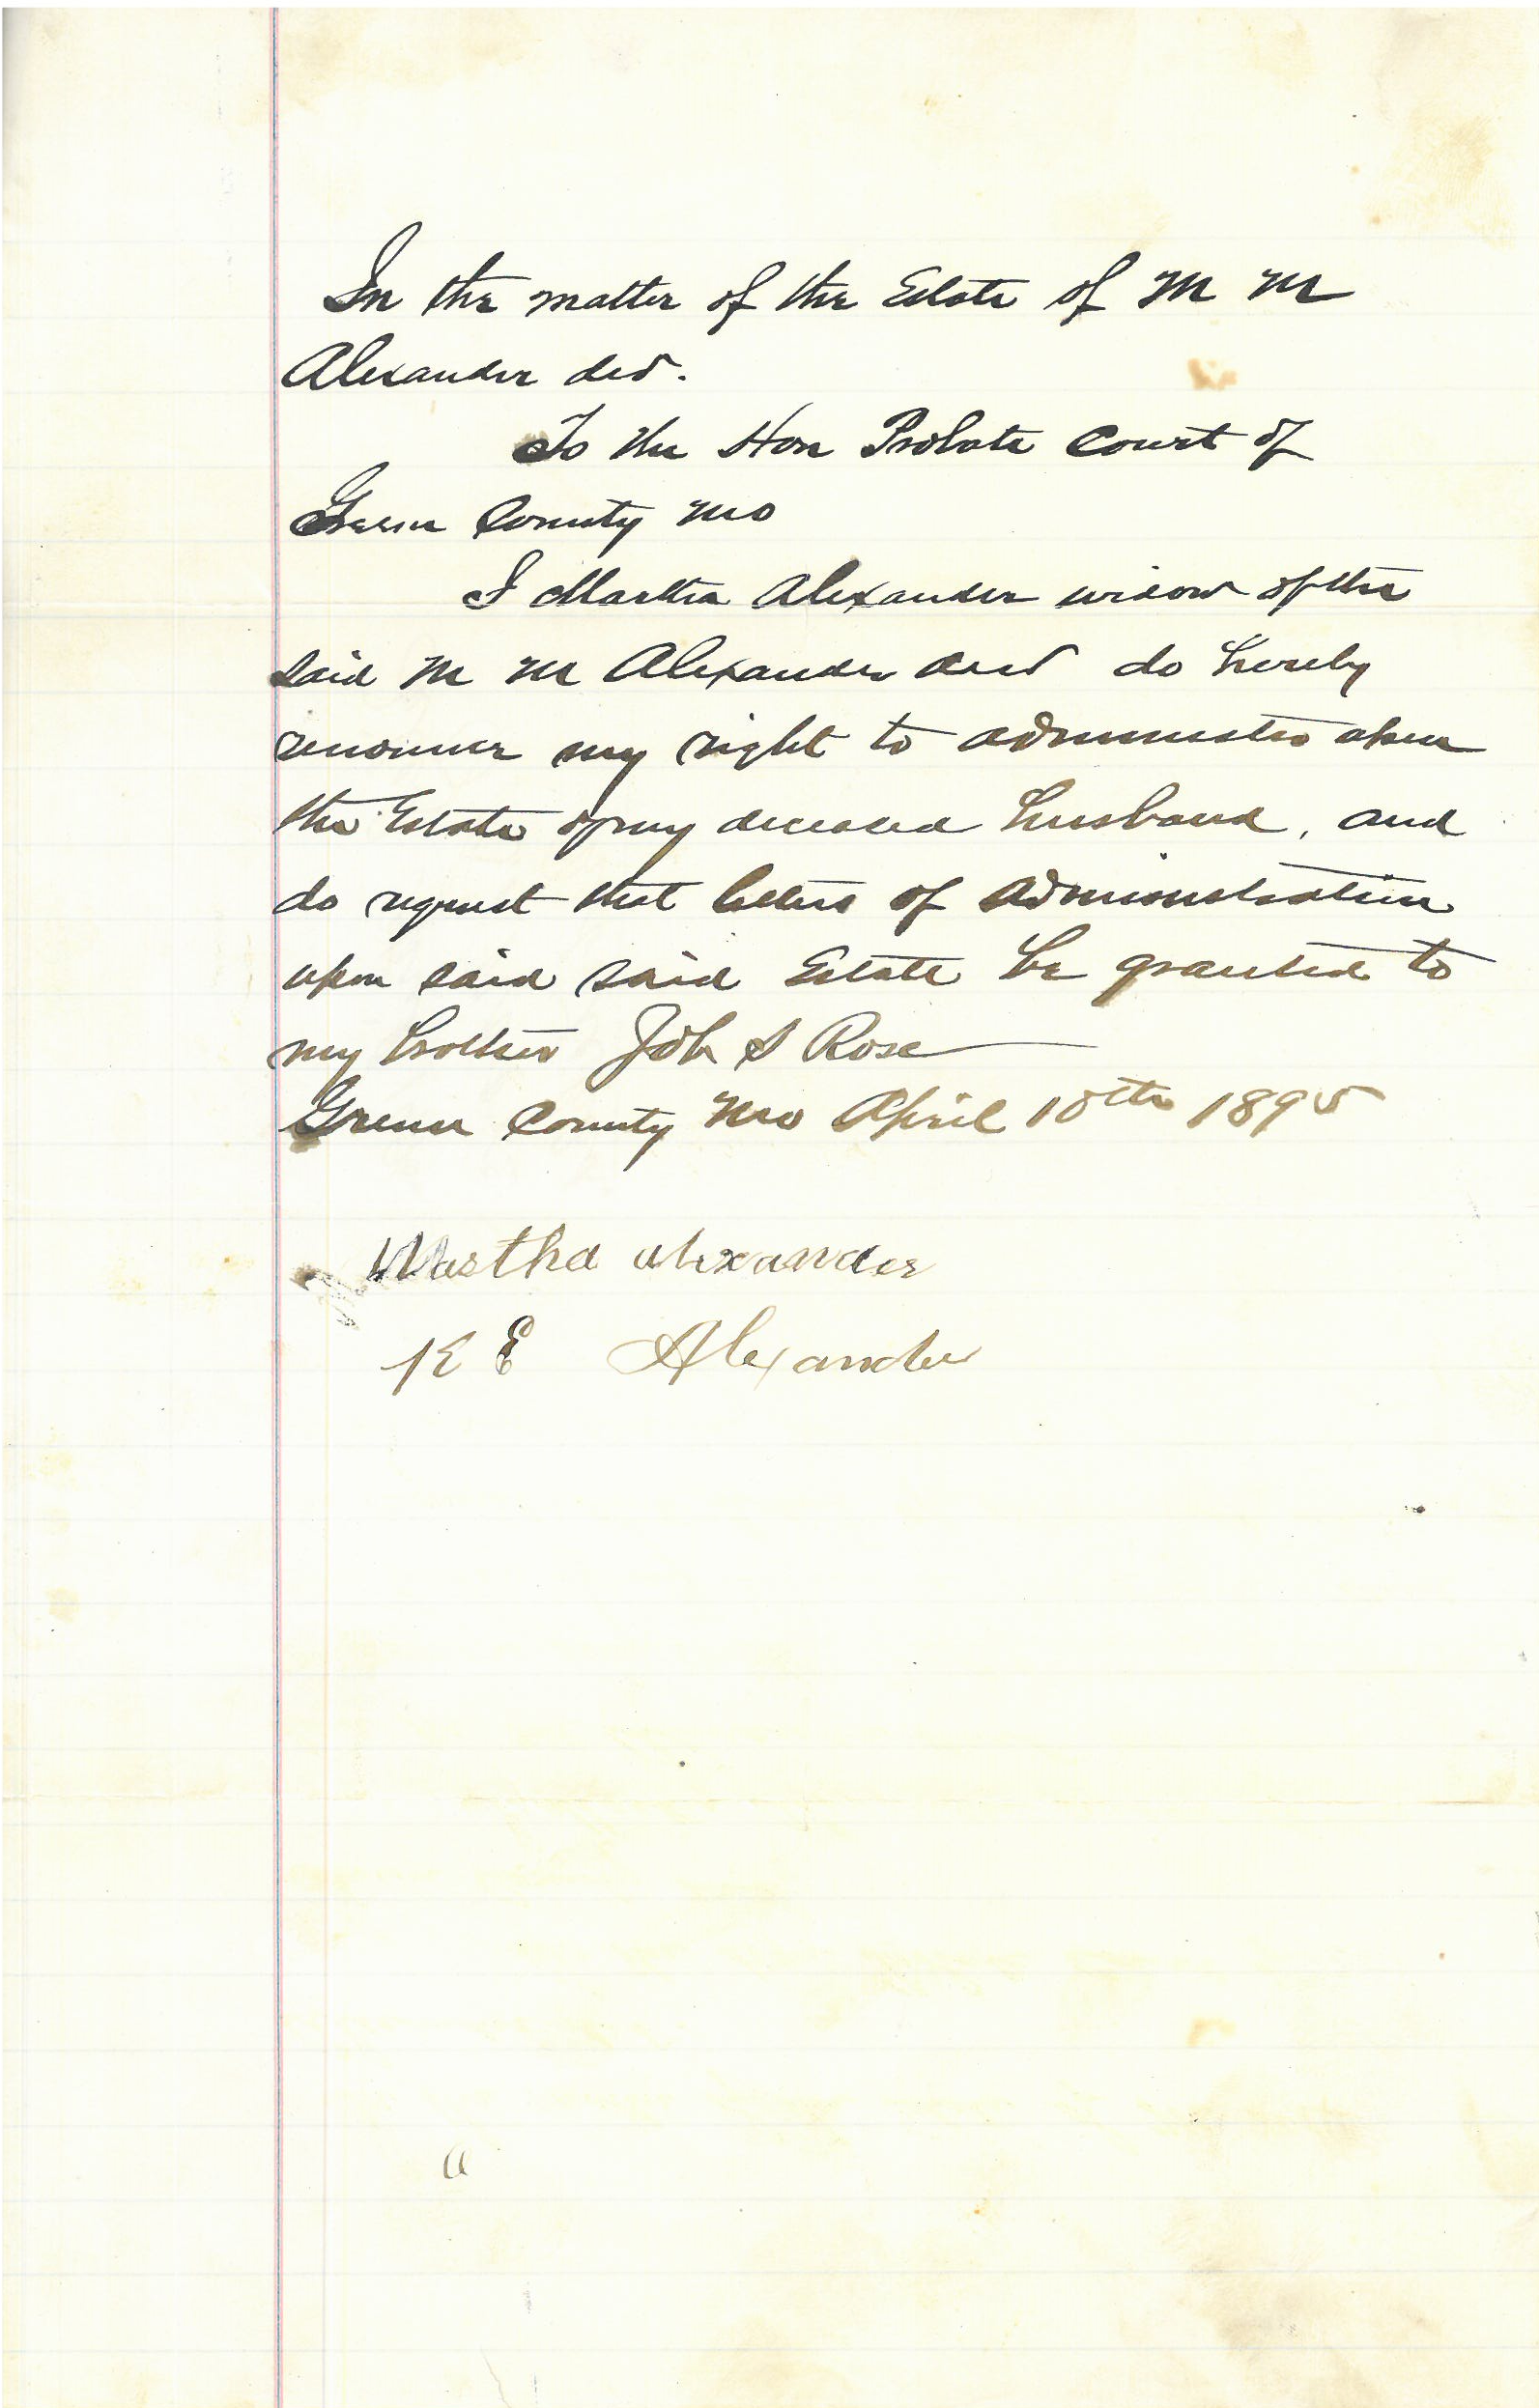 In the matter of the Estate of M M
Alexander decd.
To the Hon Probate Court of
Greene County Mo
I Martha Alexander widow of the
said M M Alexander decd do hereby
renounce my right to administer upon
the Estate of my deceased husband, and
do request that letters of administration
upon said said Estate be granted to
my brother Job S Rose
Greene County Mo April 10th 1895
Martha alexander
K E Alexander